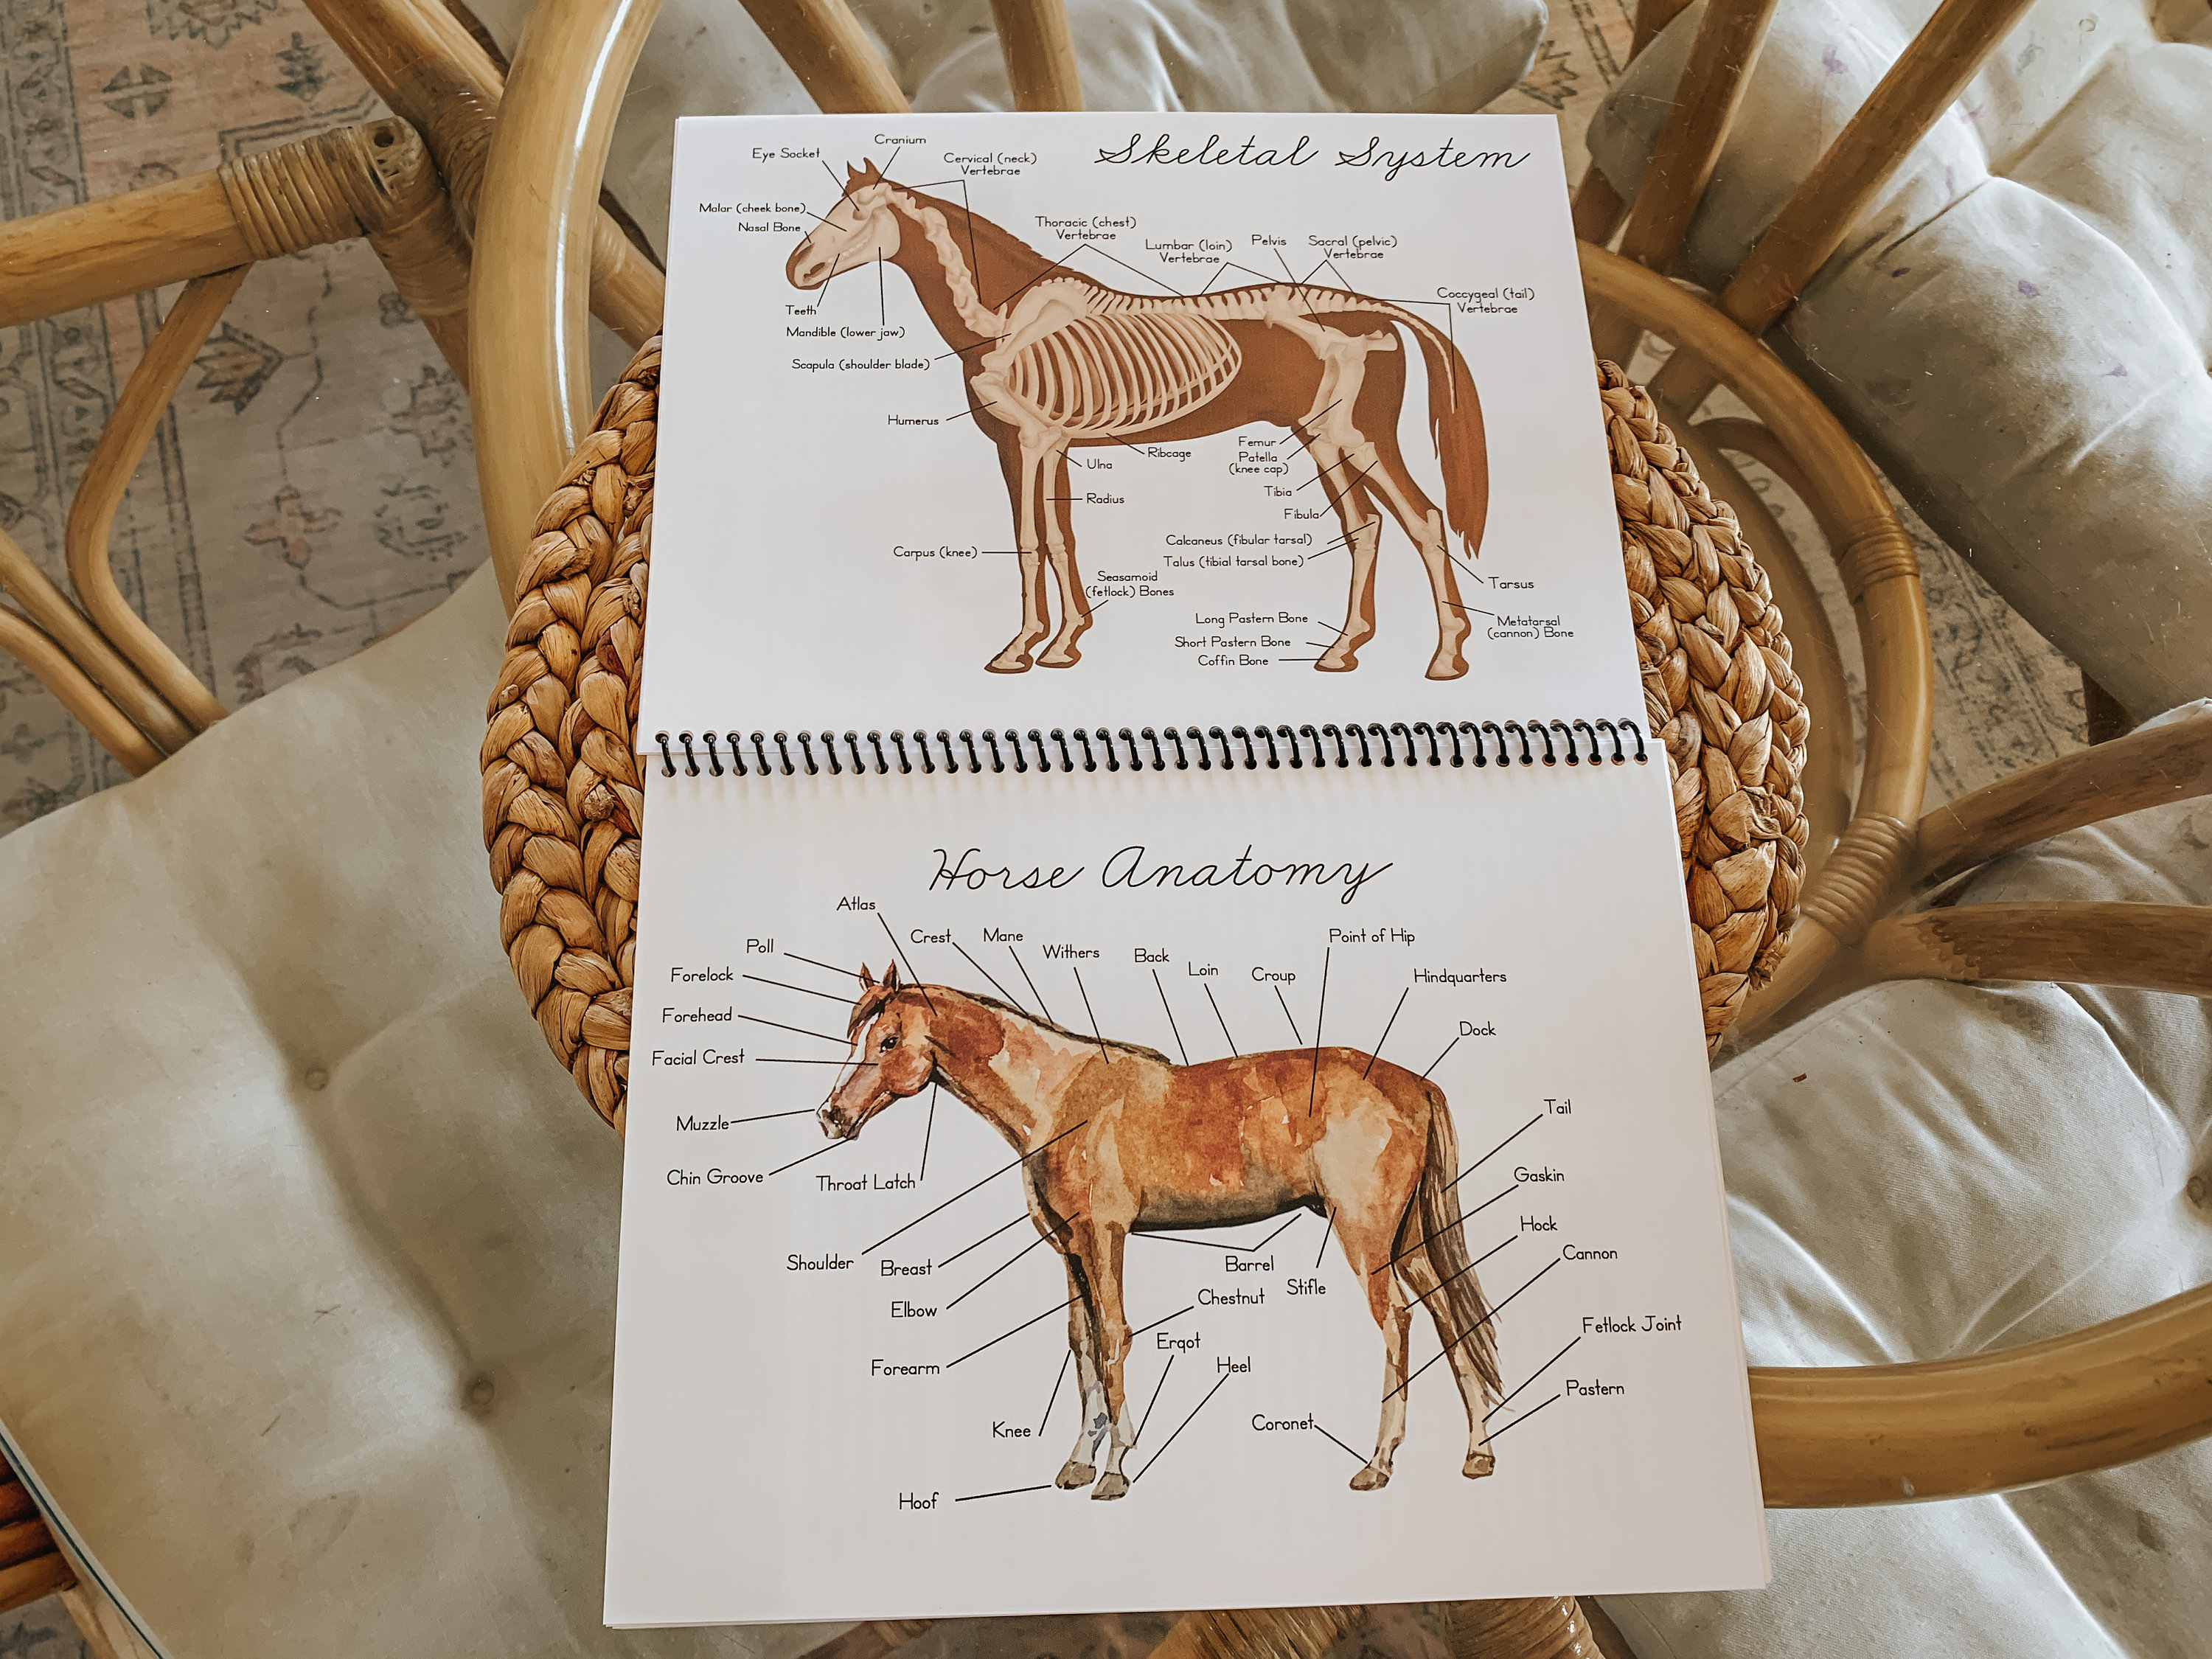 Skeletal System
Cranium
Eye Socket
Cervical (neck)
Vertebrae
Malar (cheek bone)
Nasal Bone
Thoracic (chest)
Vertebrae
Lumbar (loin)
Vertebrae
Pelvis
Sacral (pelvic)
Vertebrae
Coccygeal (tail)
Vertebrae
Teeth
Mandible (lower jaw)
Scapula (shoulder blade)
Humerus
Ulna
Ribcage
Femur
Patella
(knee cap)
Radius
Tibia
Fibula
Carpus (knee)
Calcaneus (fibular tarsal)
Talus (tibial tarsal bone)
Seasamoid
(fetlock) Bones
Tarsus
Long Pastern Bone
Metatarsal
(cannon) Bone
Short Pastern Bone
Coffin Bone
Horse Anatomy
Atlas
Poll
Crest
Mane
Withers
Back
Loin
Croup
Point of Hip
Hindquarters
Forelock
Forehead
Dock
Facial Crest
Muzzle
Tail
Chin Groove
Throat Latch
Gaskin
Hock
Shoulder
Breast
Barrel
Cannon
Elbow
Chestnut
Stifle
Forearm
Ergot
Heel
Fetlock Joint
Pastern
Knee
Coronet
Hoof